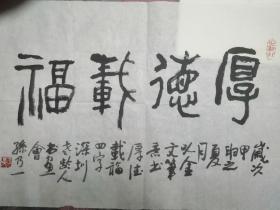 厚德載福
歲次
甲申之
夏
月
以金
文筆
意书
厚德
載福
四字
深圳
老龄人
书画
會
孫乃一